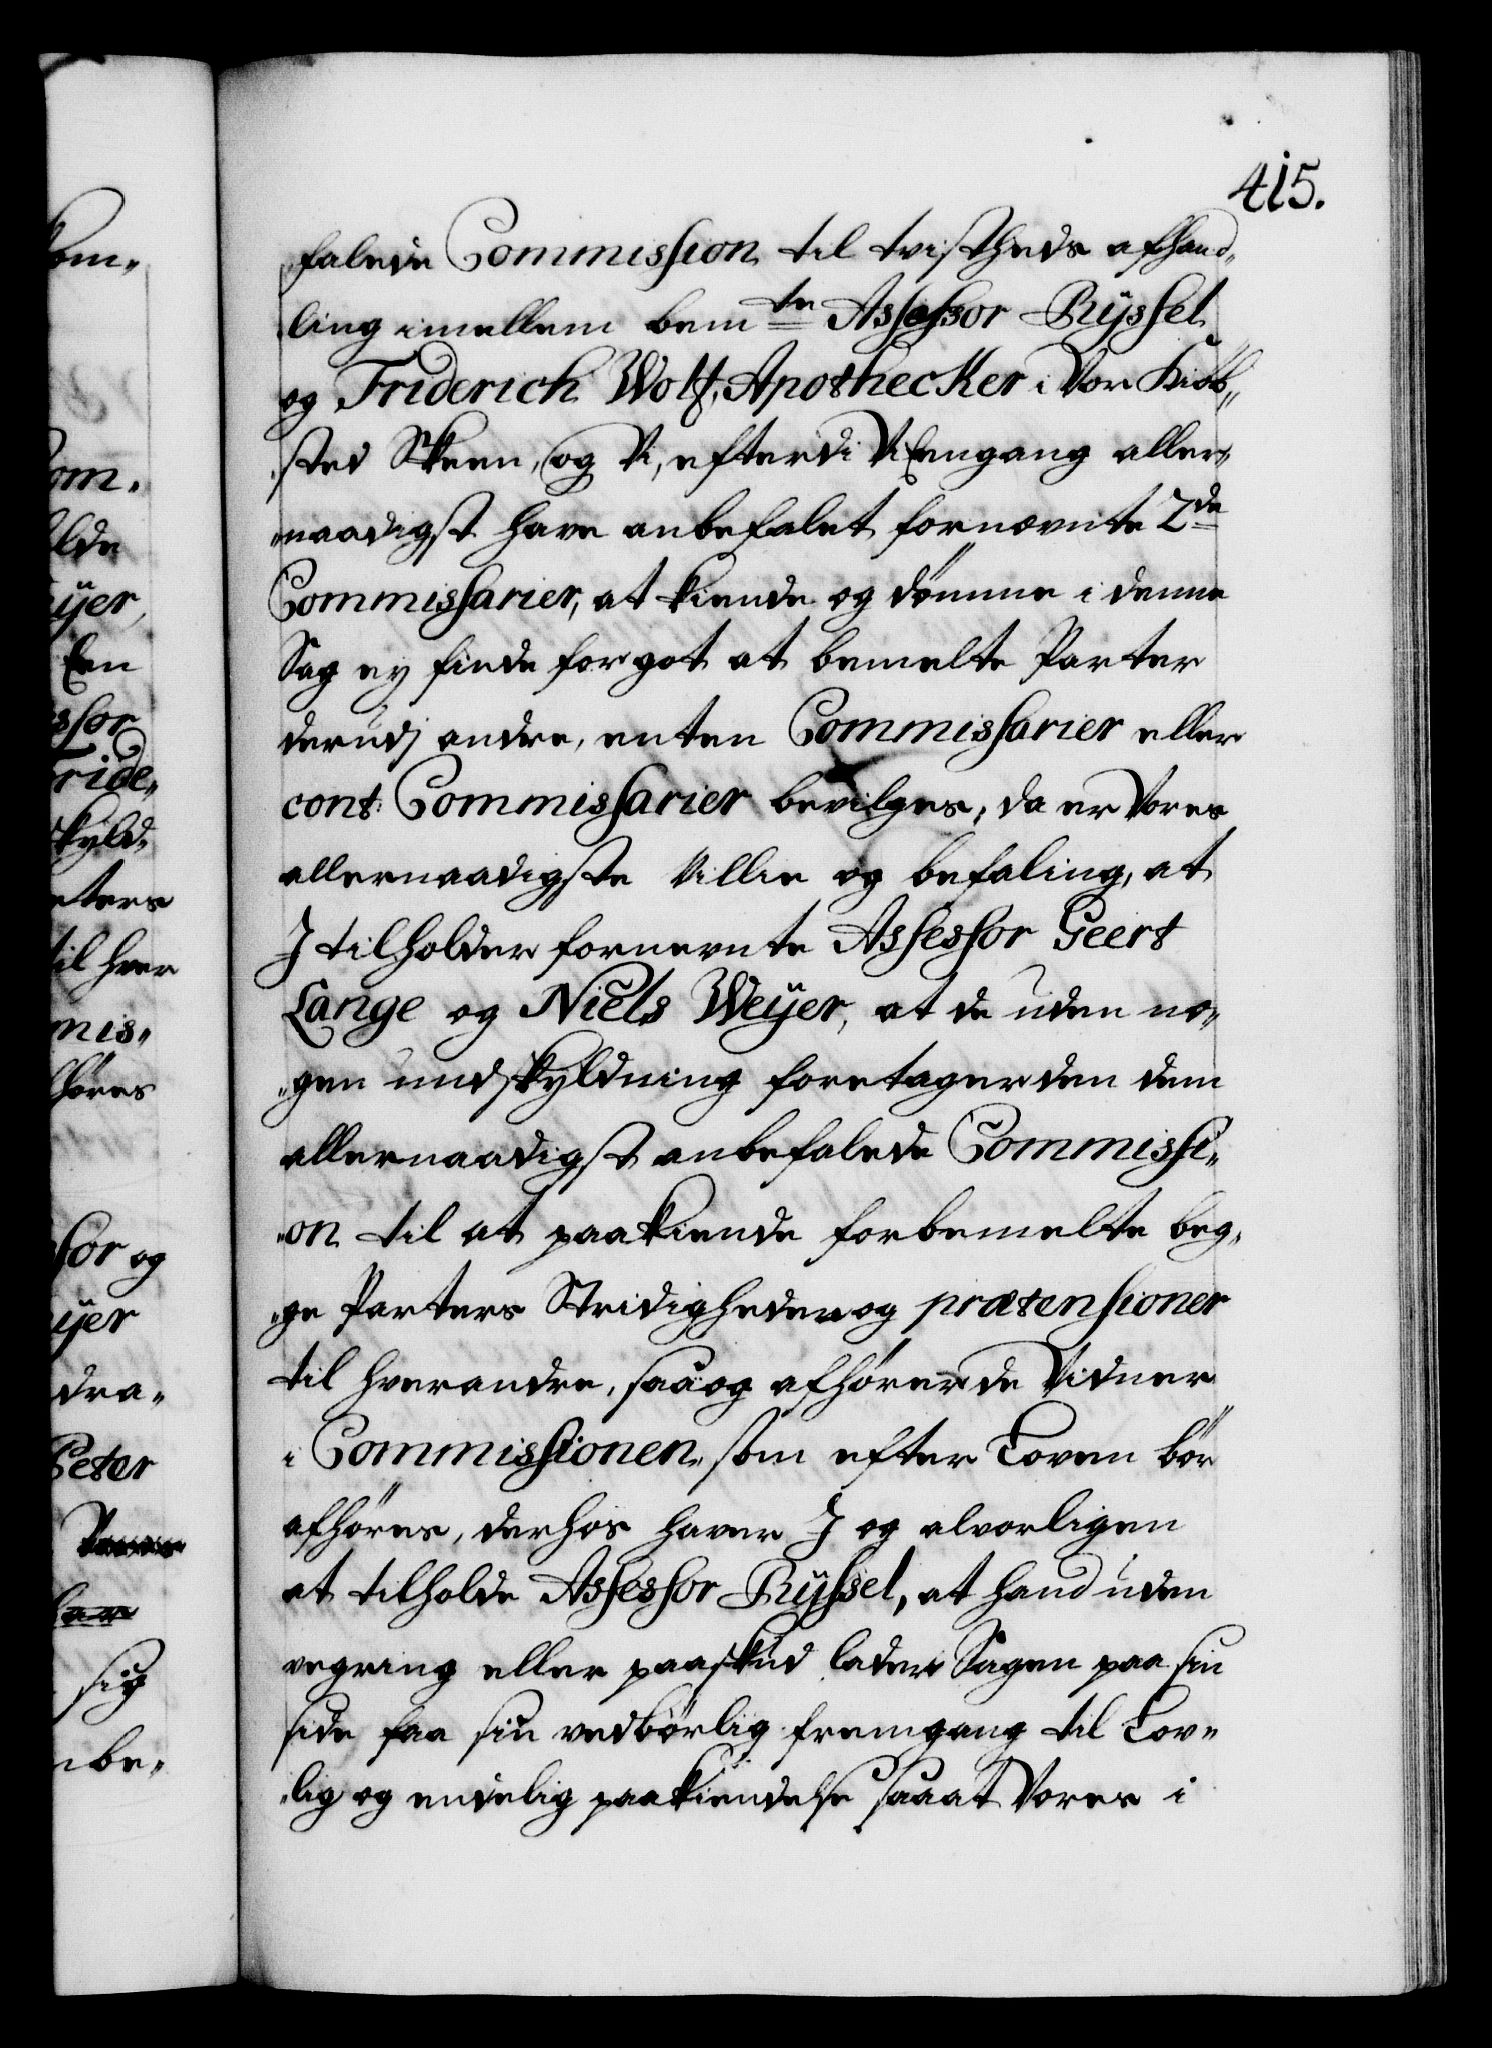 415.
falede Commission til tvistheds afhand„
ling imellem bem<sup>te</sup> Assessor Rÿssel
og Friderich Wolf, Apothecker i Vor Kiøb„
sted Skeen, og Vi, efterdi Vi Eengang aller„
„naadigst have anbefalet fornevnte 2<sup>de</sup>
Commissarier, at kiende og dømme i denne
Sag ey finde for got at bemelte Parter
derudj andre, enten Commissarier eller
cont: Commissarier bevilges; da er Vores
allernaadigste Villie og befaling, at
I tilholder fornevnte Assessor Geert
Lange og Niels Weÿer, at de uden no„
„gen undskyldning foretager den dem
allernaadigst anbefalede Commissi„
„on til at paakiende forbemelte beg„
„ge Parters Stridigheder og prætensioner
til hverandre, saa og afhører de Vidner
i Commissionen, som efter Loven bør
afhøres, derhos haver I og alvorligen
at tilholde Assessor Rÿssel, at hand uden
vegring eller paaskud lader Sagen paa sin
side faa sin vedbørlig fremgang til Lov„
„lig og endelig paakiendelse saa at Vores i